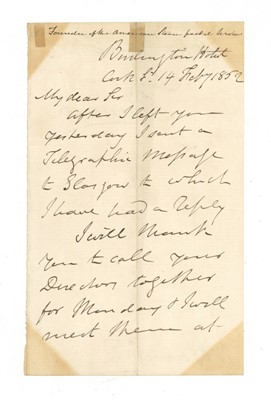 Founder of the American Steam packet Service
Burlington Hotel
Cork St. 14 Feby 1852
My dear Sir
After I left you
yesterday I sent a
Telegraphic Message
to Glasgow to which
I have had a reply
I will thank
you to call your
Directors together
for Monday & I will
meet them at